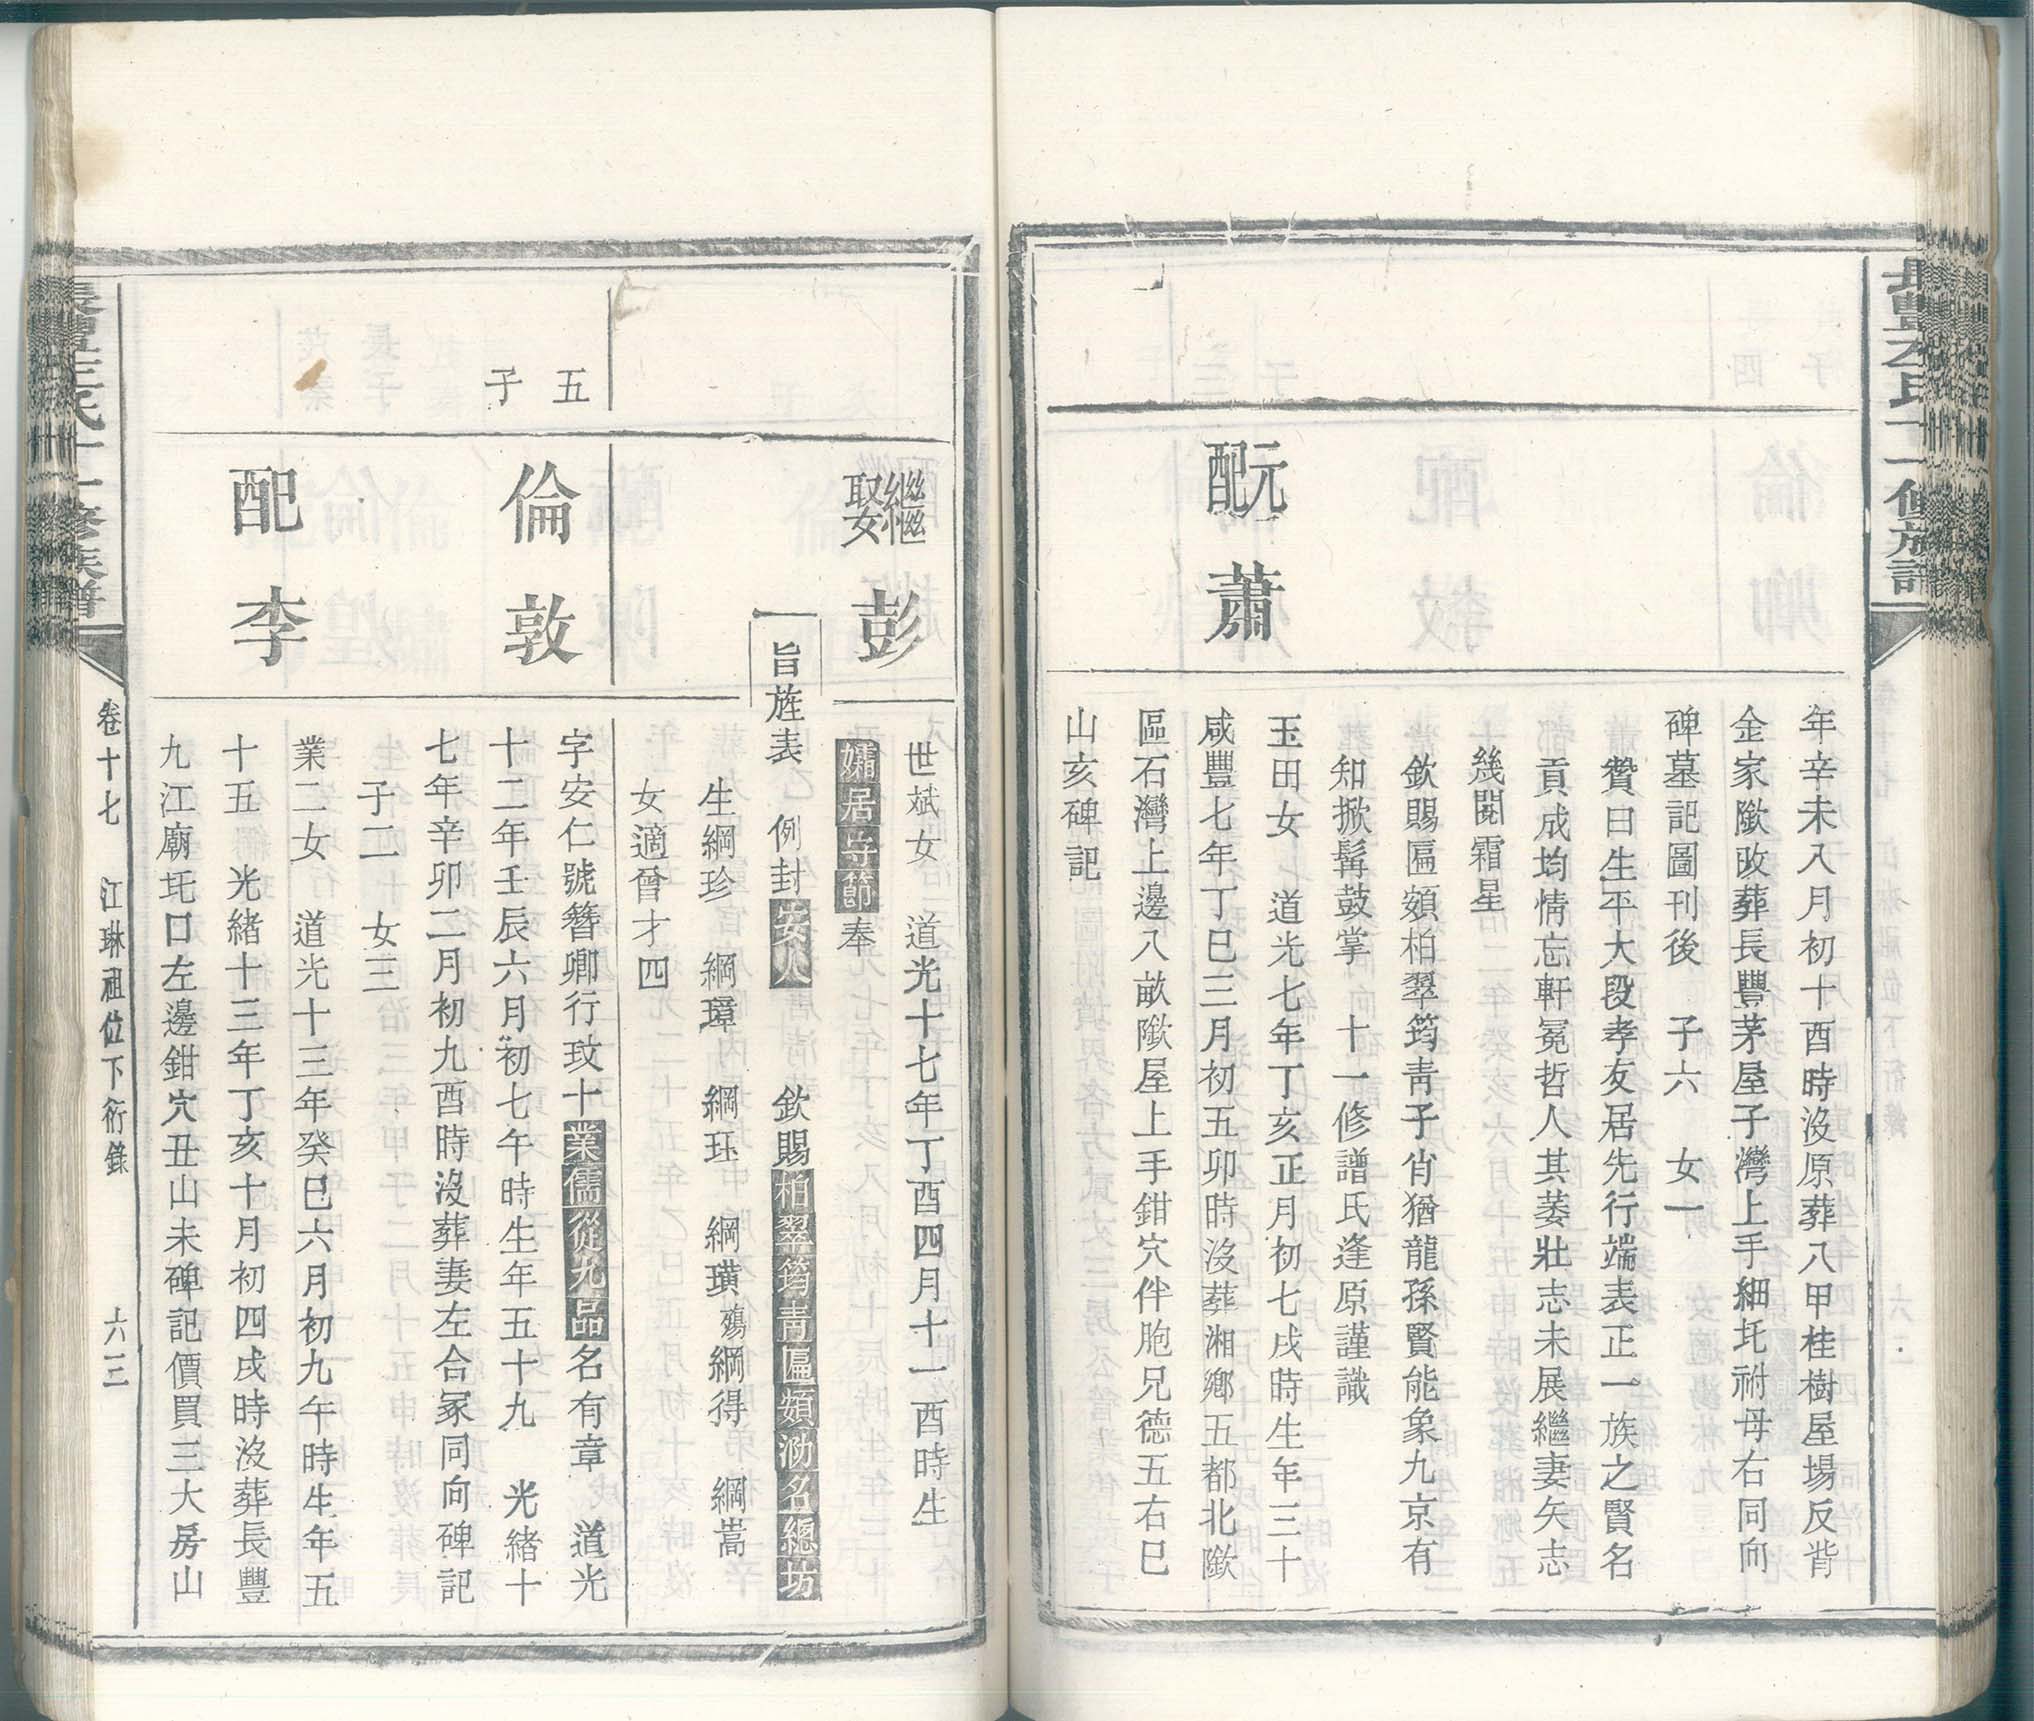 年辛未八月初十酉時沒原葬八甲桂樹屋場反背
金家隞改葬長豐茅屋子灣上手細圫祔母右同向
碑墓記圖刊後 子六 女一
贊曰生平大段孝友居先行端表正一族之賢名
貢成均情忘軒冕哲人其萎壯志未展繼妻矢志
幾閱霜星
欽賜匾額柏翠筠青子肖猶龍孫賢能象九京有
知掀髯鼓掌 十一修譜氏逢原謹識
元配 蕭
玉田女 道光七年丁亥正月初七戌時生年三十
咸豐七年丁巳三月初五卯時沒葬湘鄉五都北隞
區石灣上邊八畝隞屋上手鉗穴伴胞兄德五右巳
山亥碑記
繼娶 彭
世斌女 道光十七年丁酉四月十一酉時生
孀居守節奉
旨旌表 例封安人 欽賜柏翠筠青匾額泐名總坊
生綱珍 綱璋 綱玨 綱璜殤綱得 綱嵩
女適曾才四
五子
倫敦
字安仁號簪卿行玟十業儒從九品名有章 道光
十二年壬辰六月初七午時生年五十九 光緒十
七年辛卯二月初九酉時沒葬妻左合冢同向碑記
子二 女三
配李
業二女 道光十三年癸巳六月初九午時生年五
十五 光緒十三年丁亥十月初四戌時沒葬長豐
九江廟圫口左邊鉗穴丑山未碑記價買三大房山
卷十七 江琳祖位下衍錄 六三